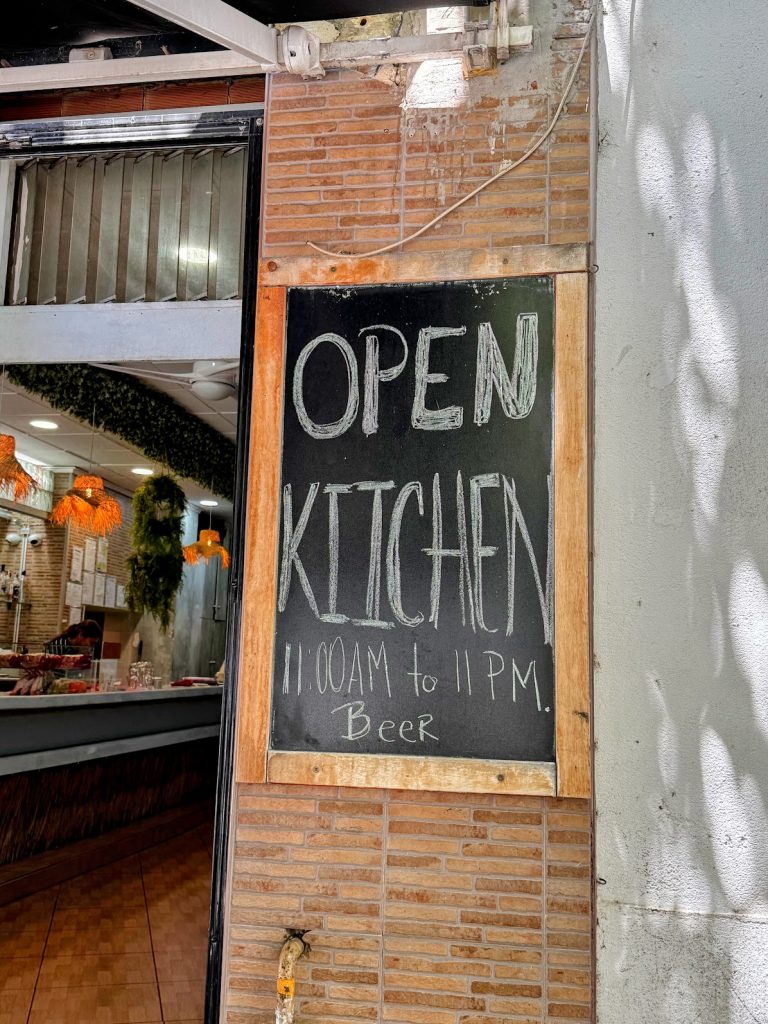 OPEN
KITCHEN
11:00AM to 11 PM.
Beer